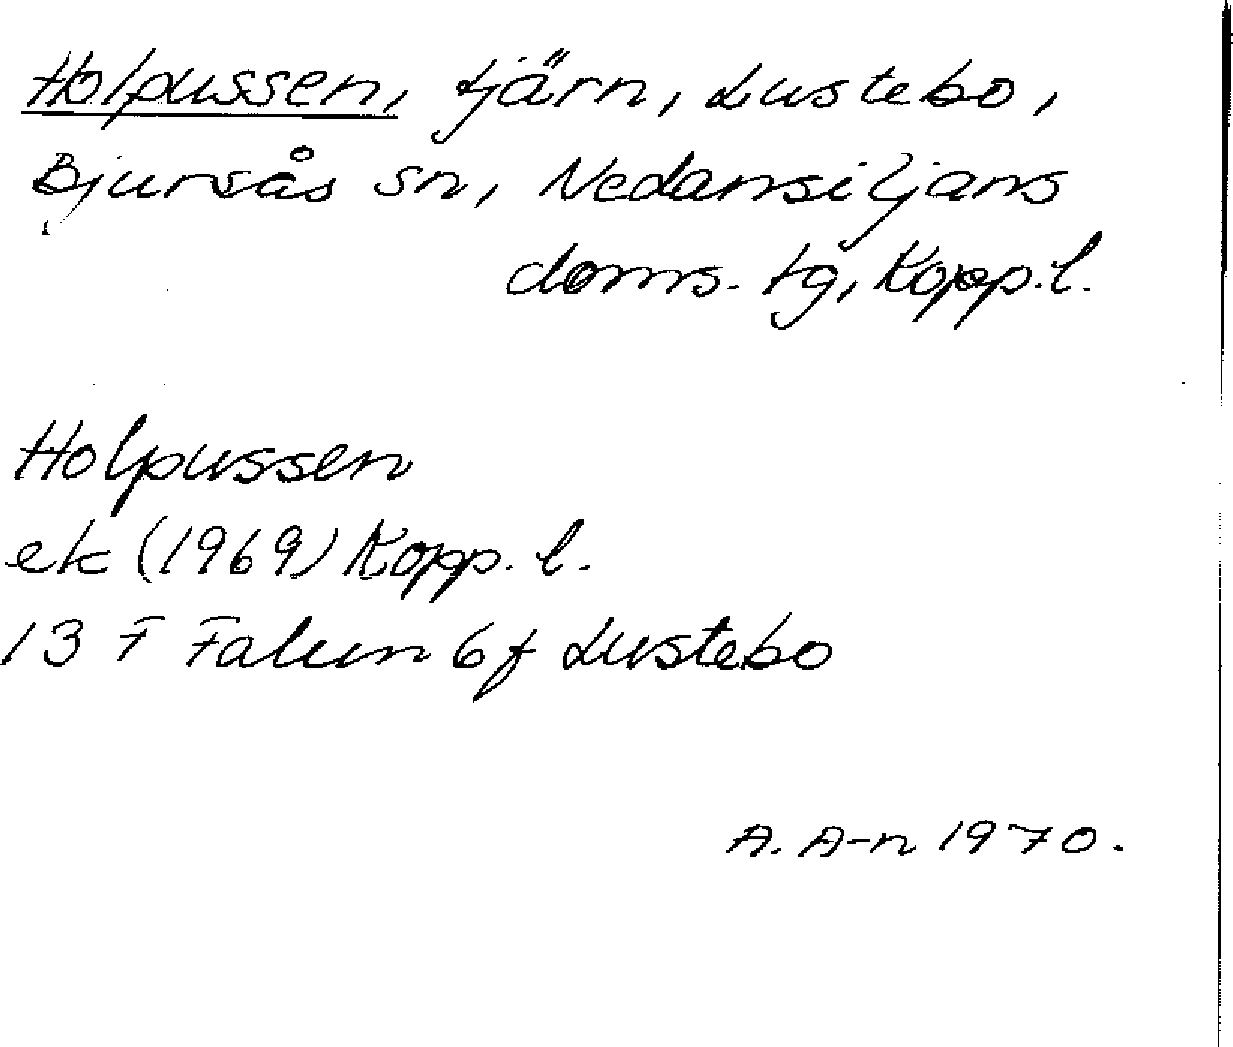 Holpussen, tjärn, Lustebo,
Bjursås sn, Nedansiljans
doms. tg, Kopp.l.
Holpussen
ek (1969) Kopp. l.
13 F Falun 6f Lustebo
A. A-n 1970.